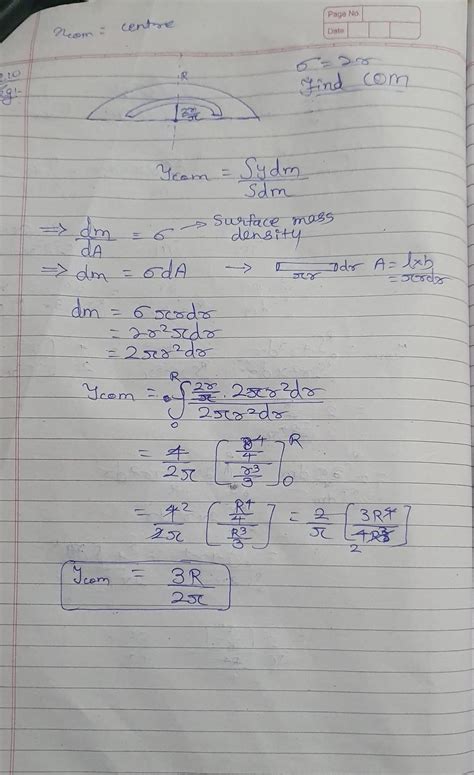 Page No
Date
xcom = centre
eg:-
R
2r/π
σ = 2r
Find COM
Ycom = ∫ydm / ∫dm
⇒ dm/dA = σ → Surface mass density
⇒ dm = σdA → πr dr A = l×b
= πrdr
dm = σ πrdr
= 2r²πdr
= 2πr²dr
Ycom = ∫₀ᴿ 2r/π · 2πr²dr / 2πr²dr
= 4/2π [ r⁴/4 / r³/3 ]₀ᴿ
= 4²/2π [ R⁴/4 / R³/3 ] = 2/π [ 3R⁴ / 4R³ ]
2
Ycom = 3R/2π